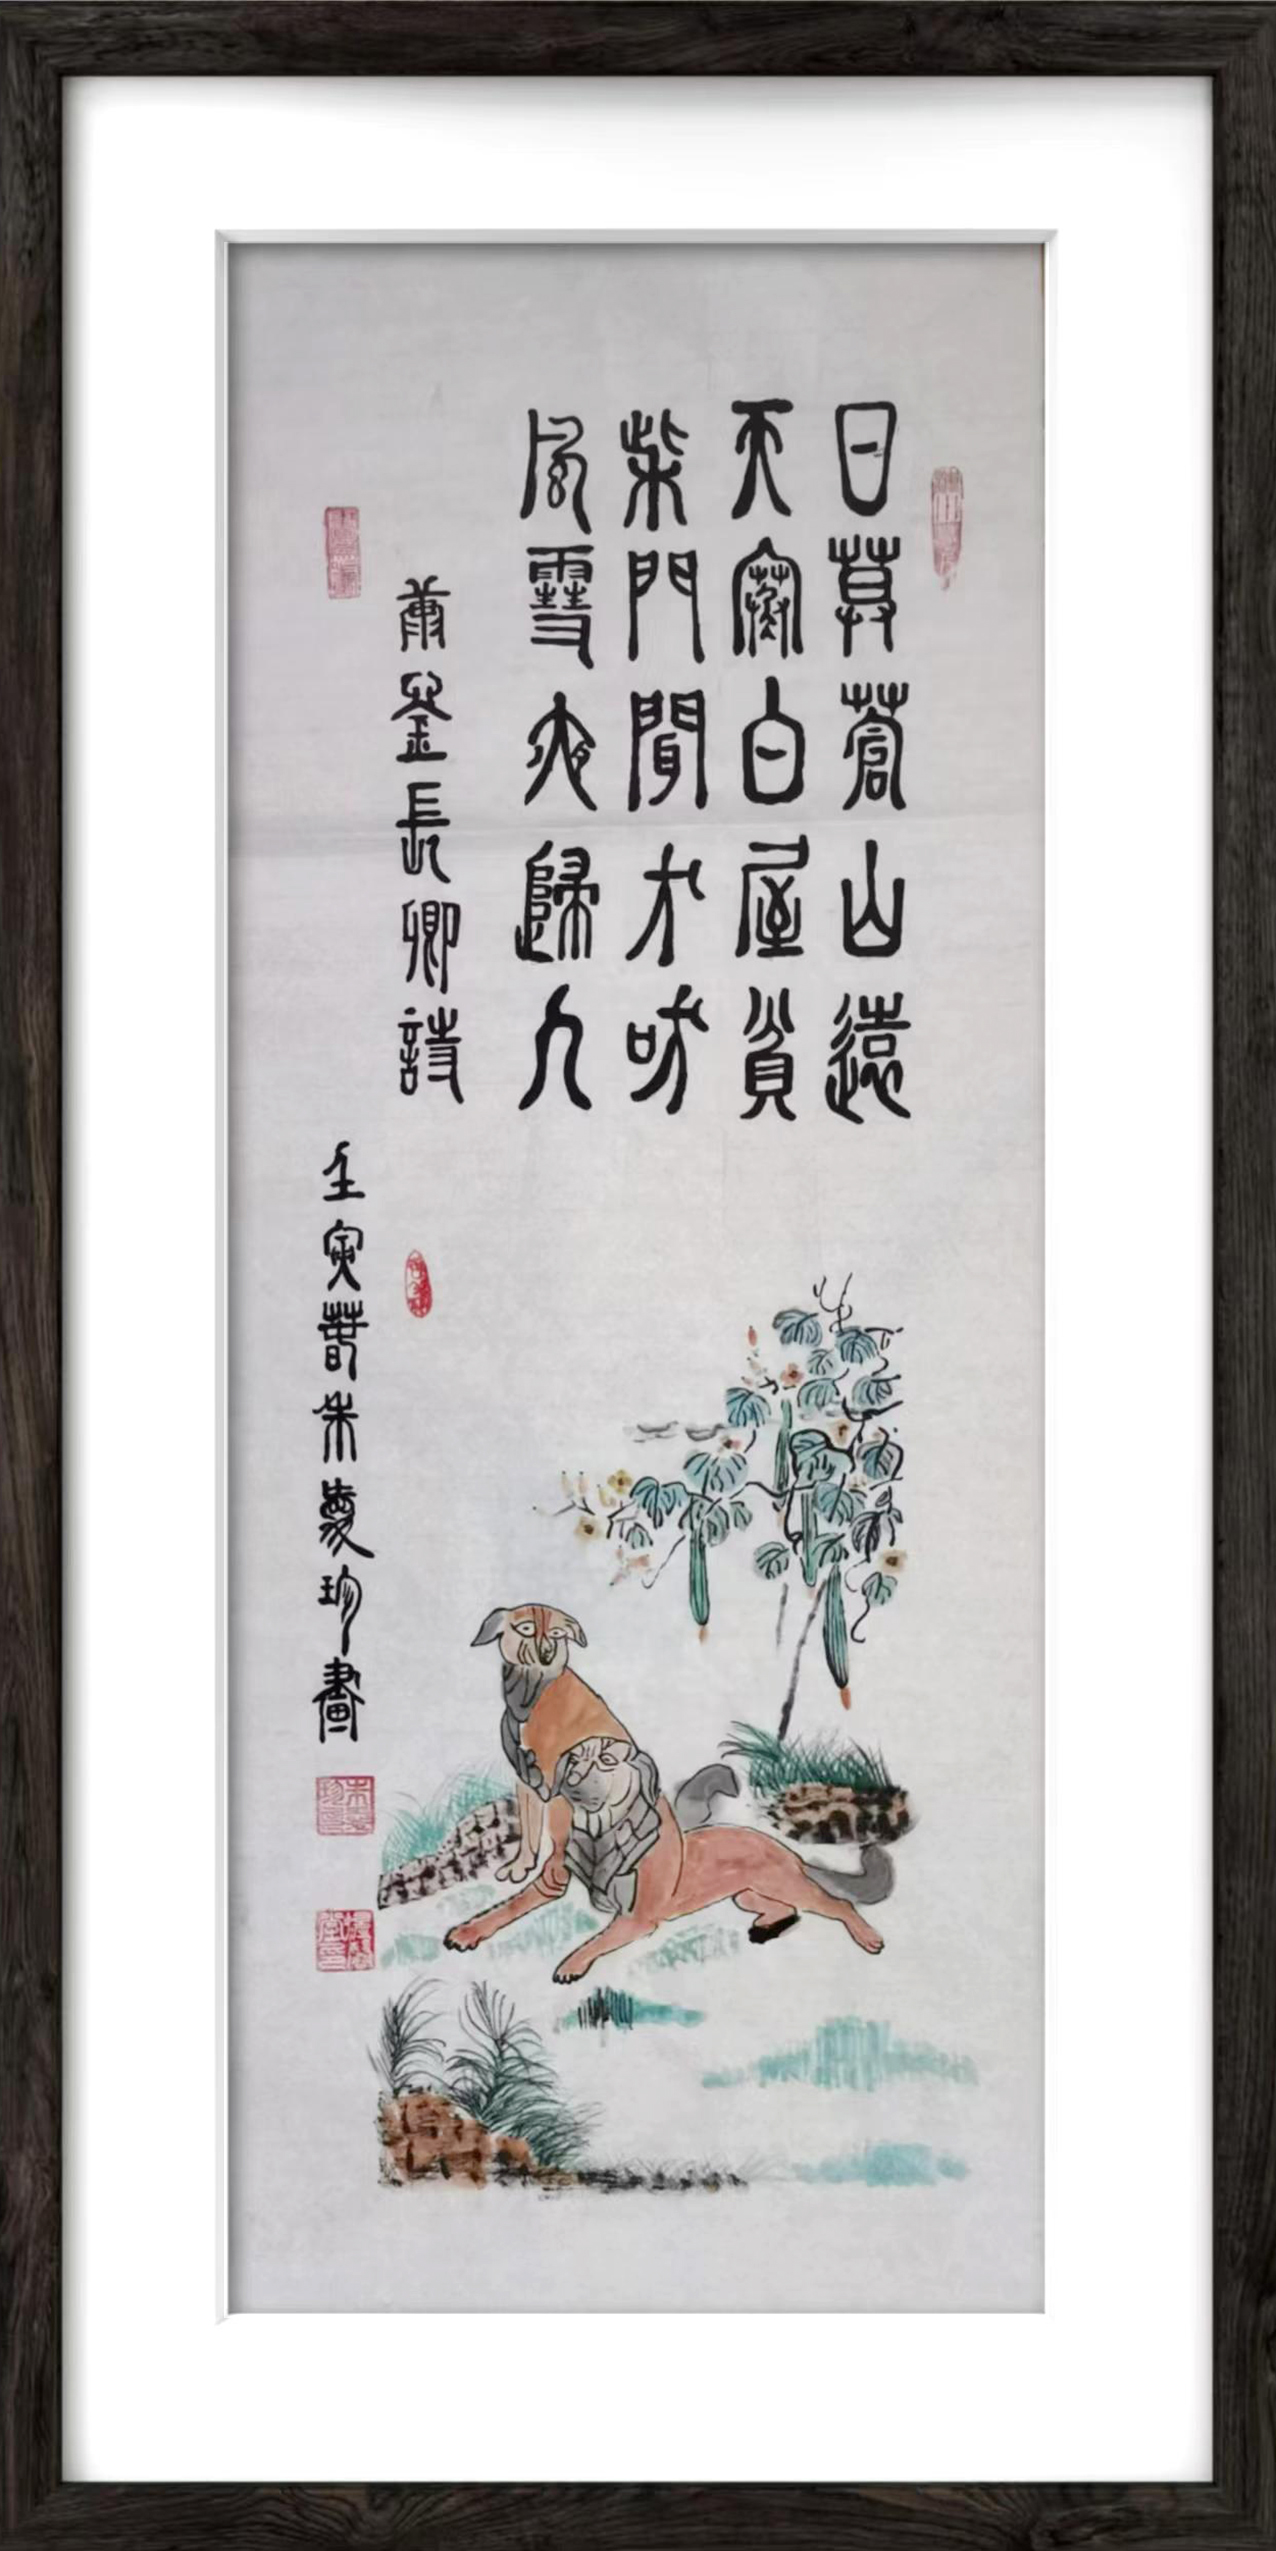 日莫蒼山遠
天寒白屋貧
柴門聞犬吠
風雪夜歸人
唐劉長卿詩
壬寅春朱愛珍畫